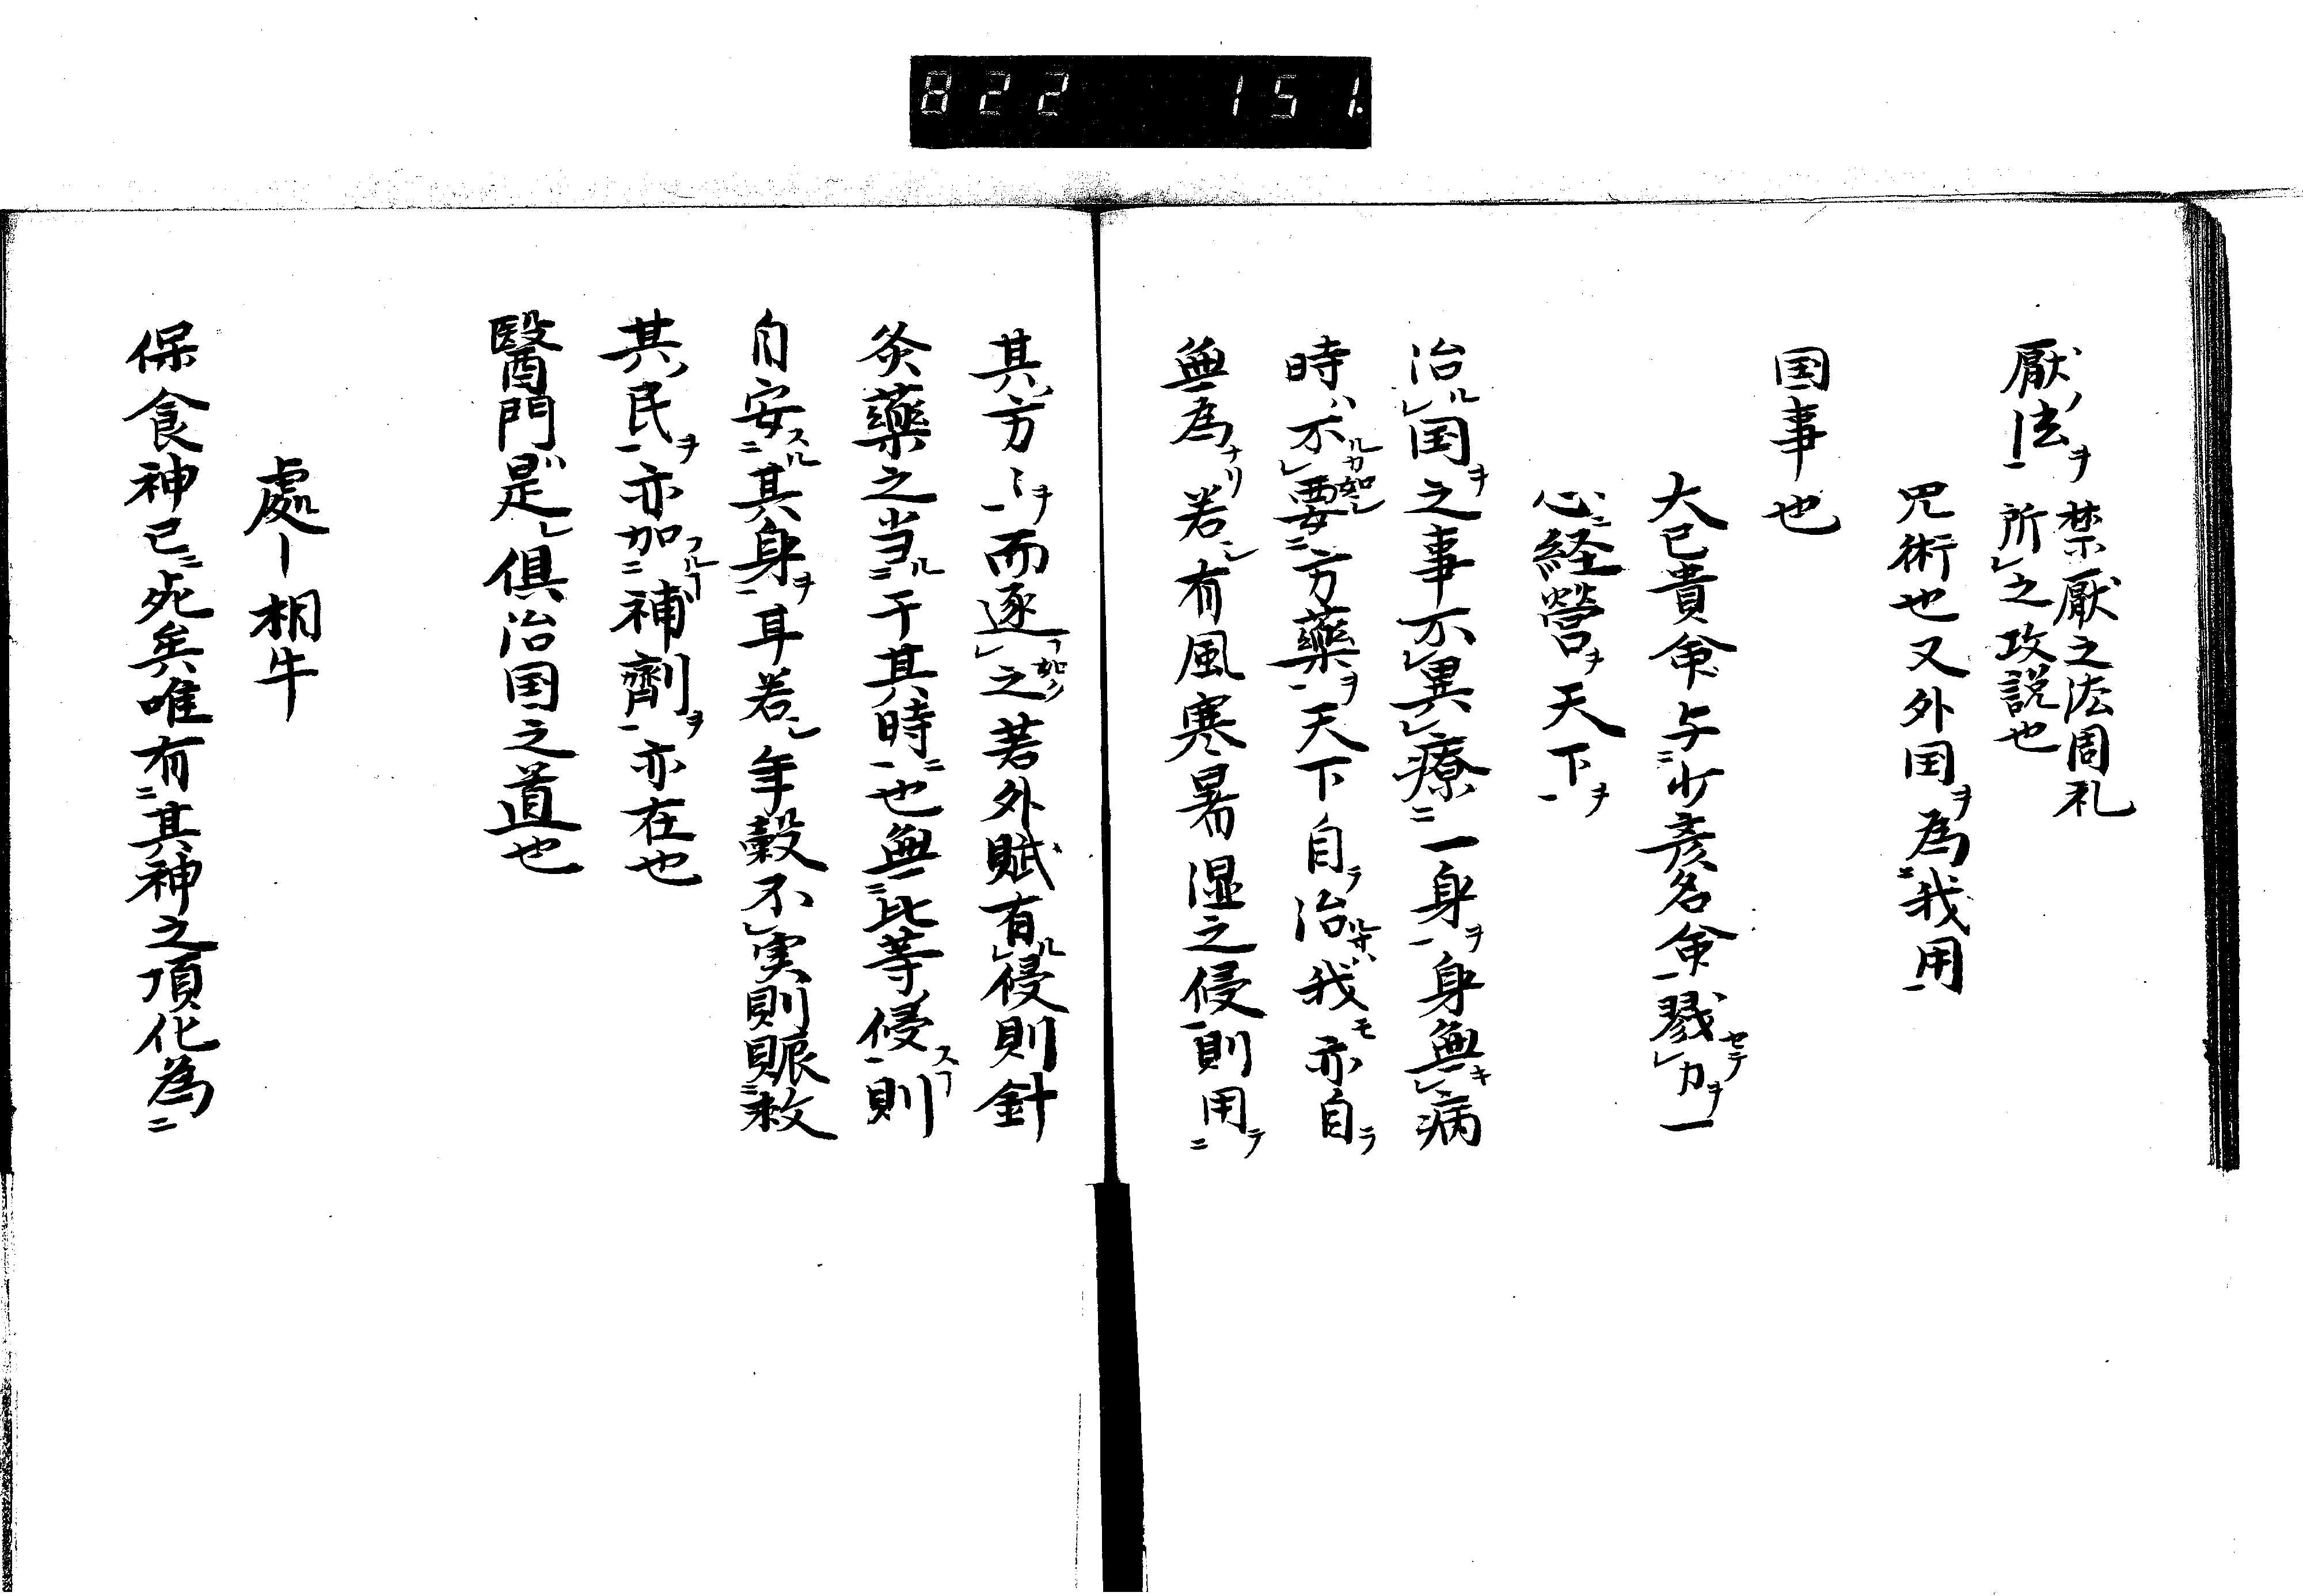 822 151.
厭ノ法ヲ一 禁厭之法周礼
所レ之攻説也
咒術也又外国ヲ為二我用一
国事也
大已貴命与二少彦名命一戮セテレ力ヲ一
心ニ経営ヲ天下ヲ一
治ルレ国ヲ之事不レ異レ療二一身ヲ一身無キレ病
時ハ不ルカ如シレ要二方薬ヲ一天下自ラ治ルトキハ我モ亦自ラ
無為ナリ若シ有風寒暑湿之侵一則用テ二
其ノ方ミヲ一而逐レ之コ如ク若外賊有ルレ侵則針
灸薬之当ル二于其時ニ一也無二比等侵スコ一則
自安スル二其身ヲ一耳若シ年穀不レ実則賑二救
其ノ民ヲ一亦加フルコ二補剤ヲ一亦在也
醫門是レ倶治国之道也
處ー相牛
保食神已ニ死矣唯有二其神之頂化為二